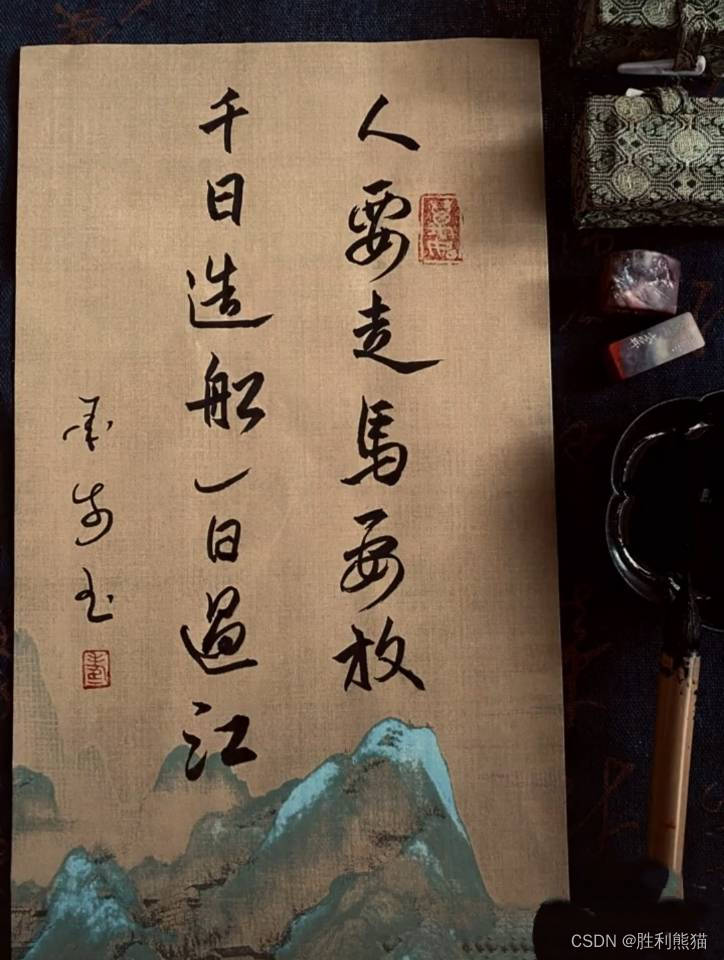 人要走馬要放
千日造船一日過江
CSDN @胜利熊猫